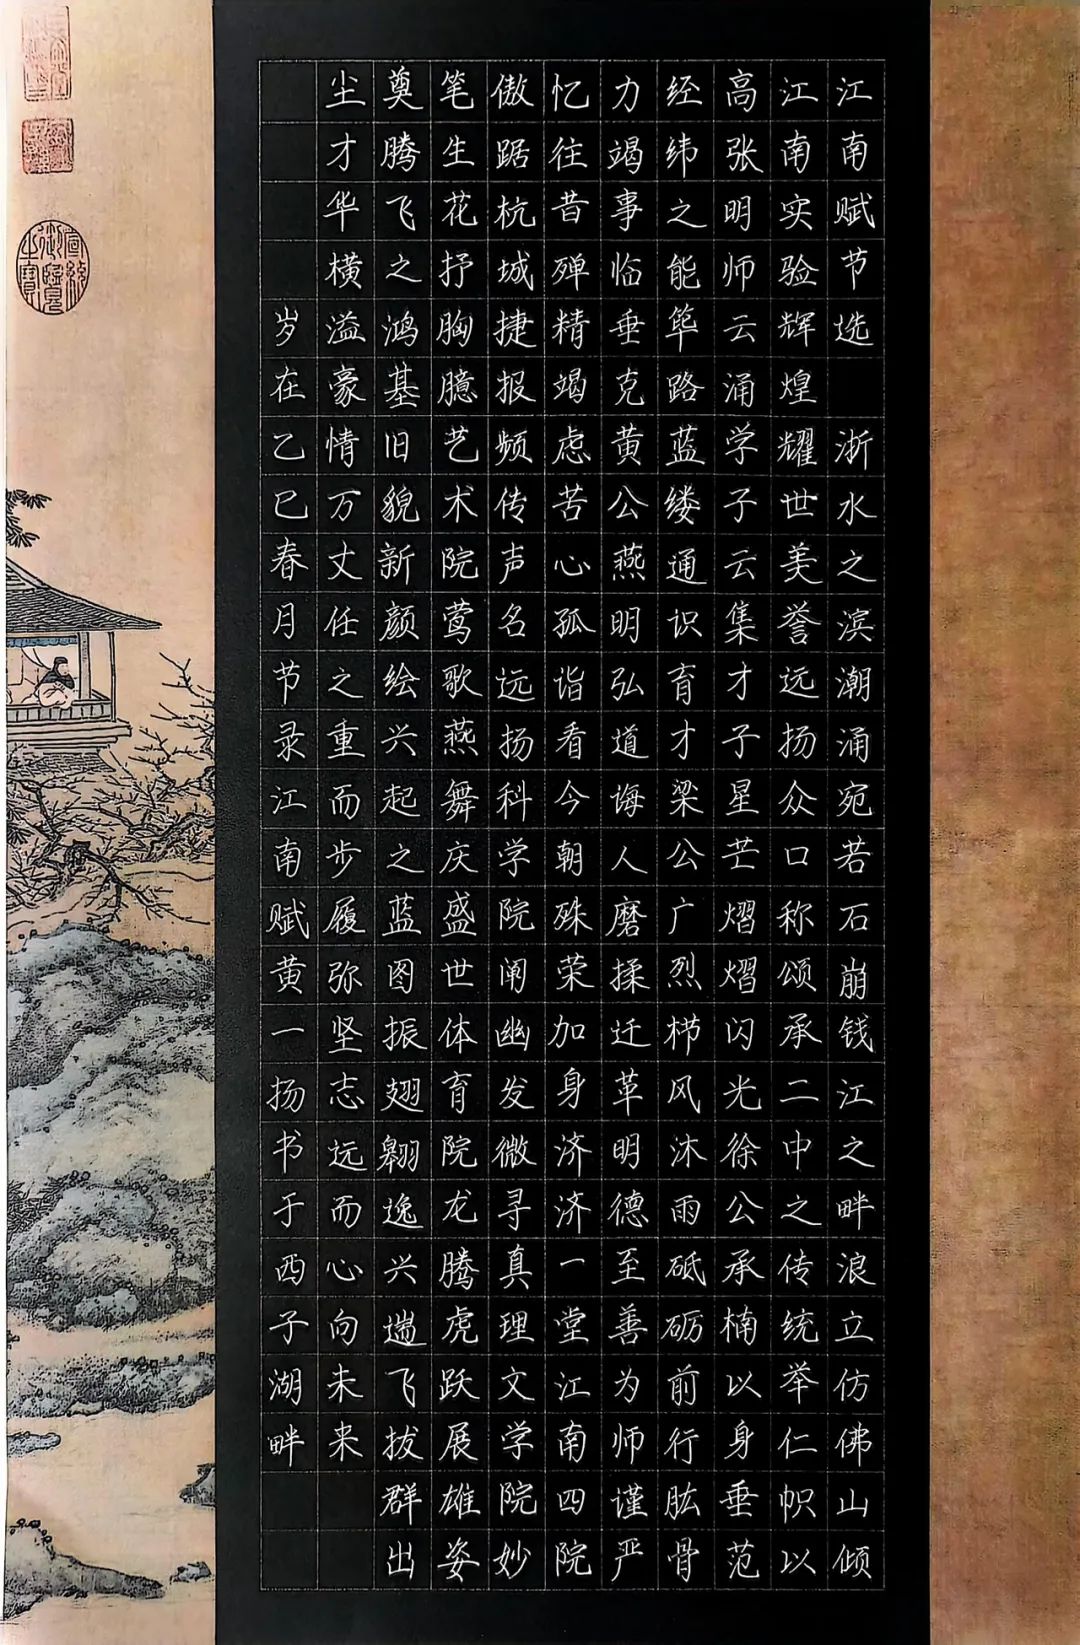 江南赋节选 浙水之滨潮涌宛若石崩钱江之畔浪立仿佛山倾
江南实验辉煌耀世美誉远扬众口称颂承二中之传统举仁帜以
高张明师云涌学子云集才子星芒熠熠闪光徐公承楠以身垂范
经纬之能筚路蓝缕通识育才梁公广烈栉风沐雨砥砺前行肱骨
力竭事临垂克黄公燕明弘道诲人磨揉迁革明德至善为师谨严
忆往昔殚精竭虑苦心孤诣看今朝殊荣加身济济一堂江南四院
傲踞杭城捷报频传声名远扬科学院阐幽发微寻真理文学院妙
笔生花抒胸臆艺术院莺歌燕舞庆盛世体育院龙腾虎跃展雄姿
奠腾飞之鸿基旧貌新颜绘兴起之蓝图振翅翱逸兴遄飞拔群出
尘才华横溢豪情万丈任之重而步履弥坚志远而心向未来
岁在乙巳春月节录江南赋黄一扬书于西子湖畔